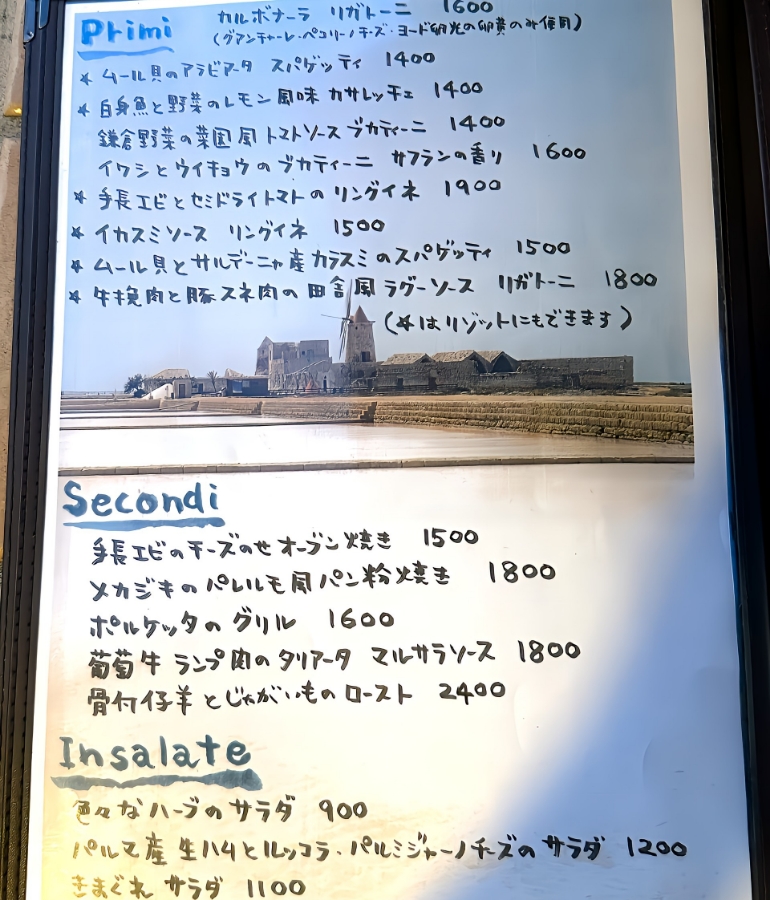 Primi
カルボナーラ リガトーニ 1600
(グアンチャーレ・ペコリーノチーズ・ヨード卵光の卵黄のみ使用)
* ムール貝のアラビアータ スパゲッティ 1400
* 白身魚と野菜のレモン風味 カサレッチェ 1400
鎌倉野菜の菜園風トマトソース ブカティーニ 1400
イワシとウイキョウのブカティーニ サフランの香り 1600
* 手長エビとセミドライトマトのリングイネ 1900
* イカスミソース リングイネ 1500
* ムール貝とサルデーニャ産カラスミのスパゲッティ 1500
* 牛挽肉と豚スネ肉の田舎風ラグーソース リガトーニ 1800
(*はリゾットにもできます)
Secondi
手長エビのチーズのせオーブン焼き 1500
メカジキのパレルモ風パン粉焼き 1800
ポルケッタのグリル 1600
葡萄牛 ランプ肉のタリアータ マルサラソース 1800
骨付仔羊とじゃがいものロースト 2400
Insalate
色々なハーブのサラダ 900
パルマ産生ハムとルッコラ・パルミジャーノチーズのサラダ 1200
きまぐれサラダ 1100